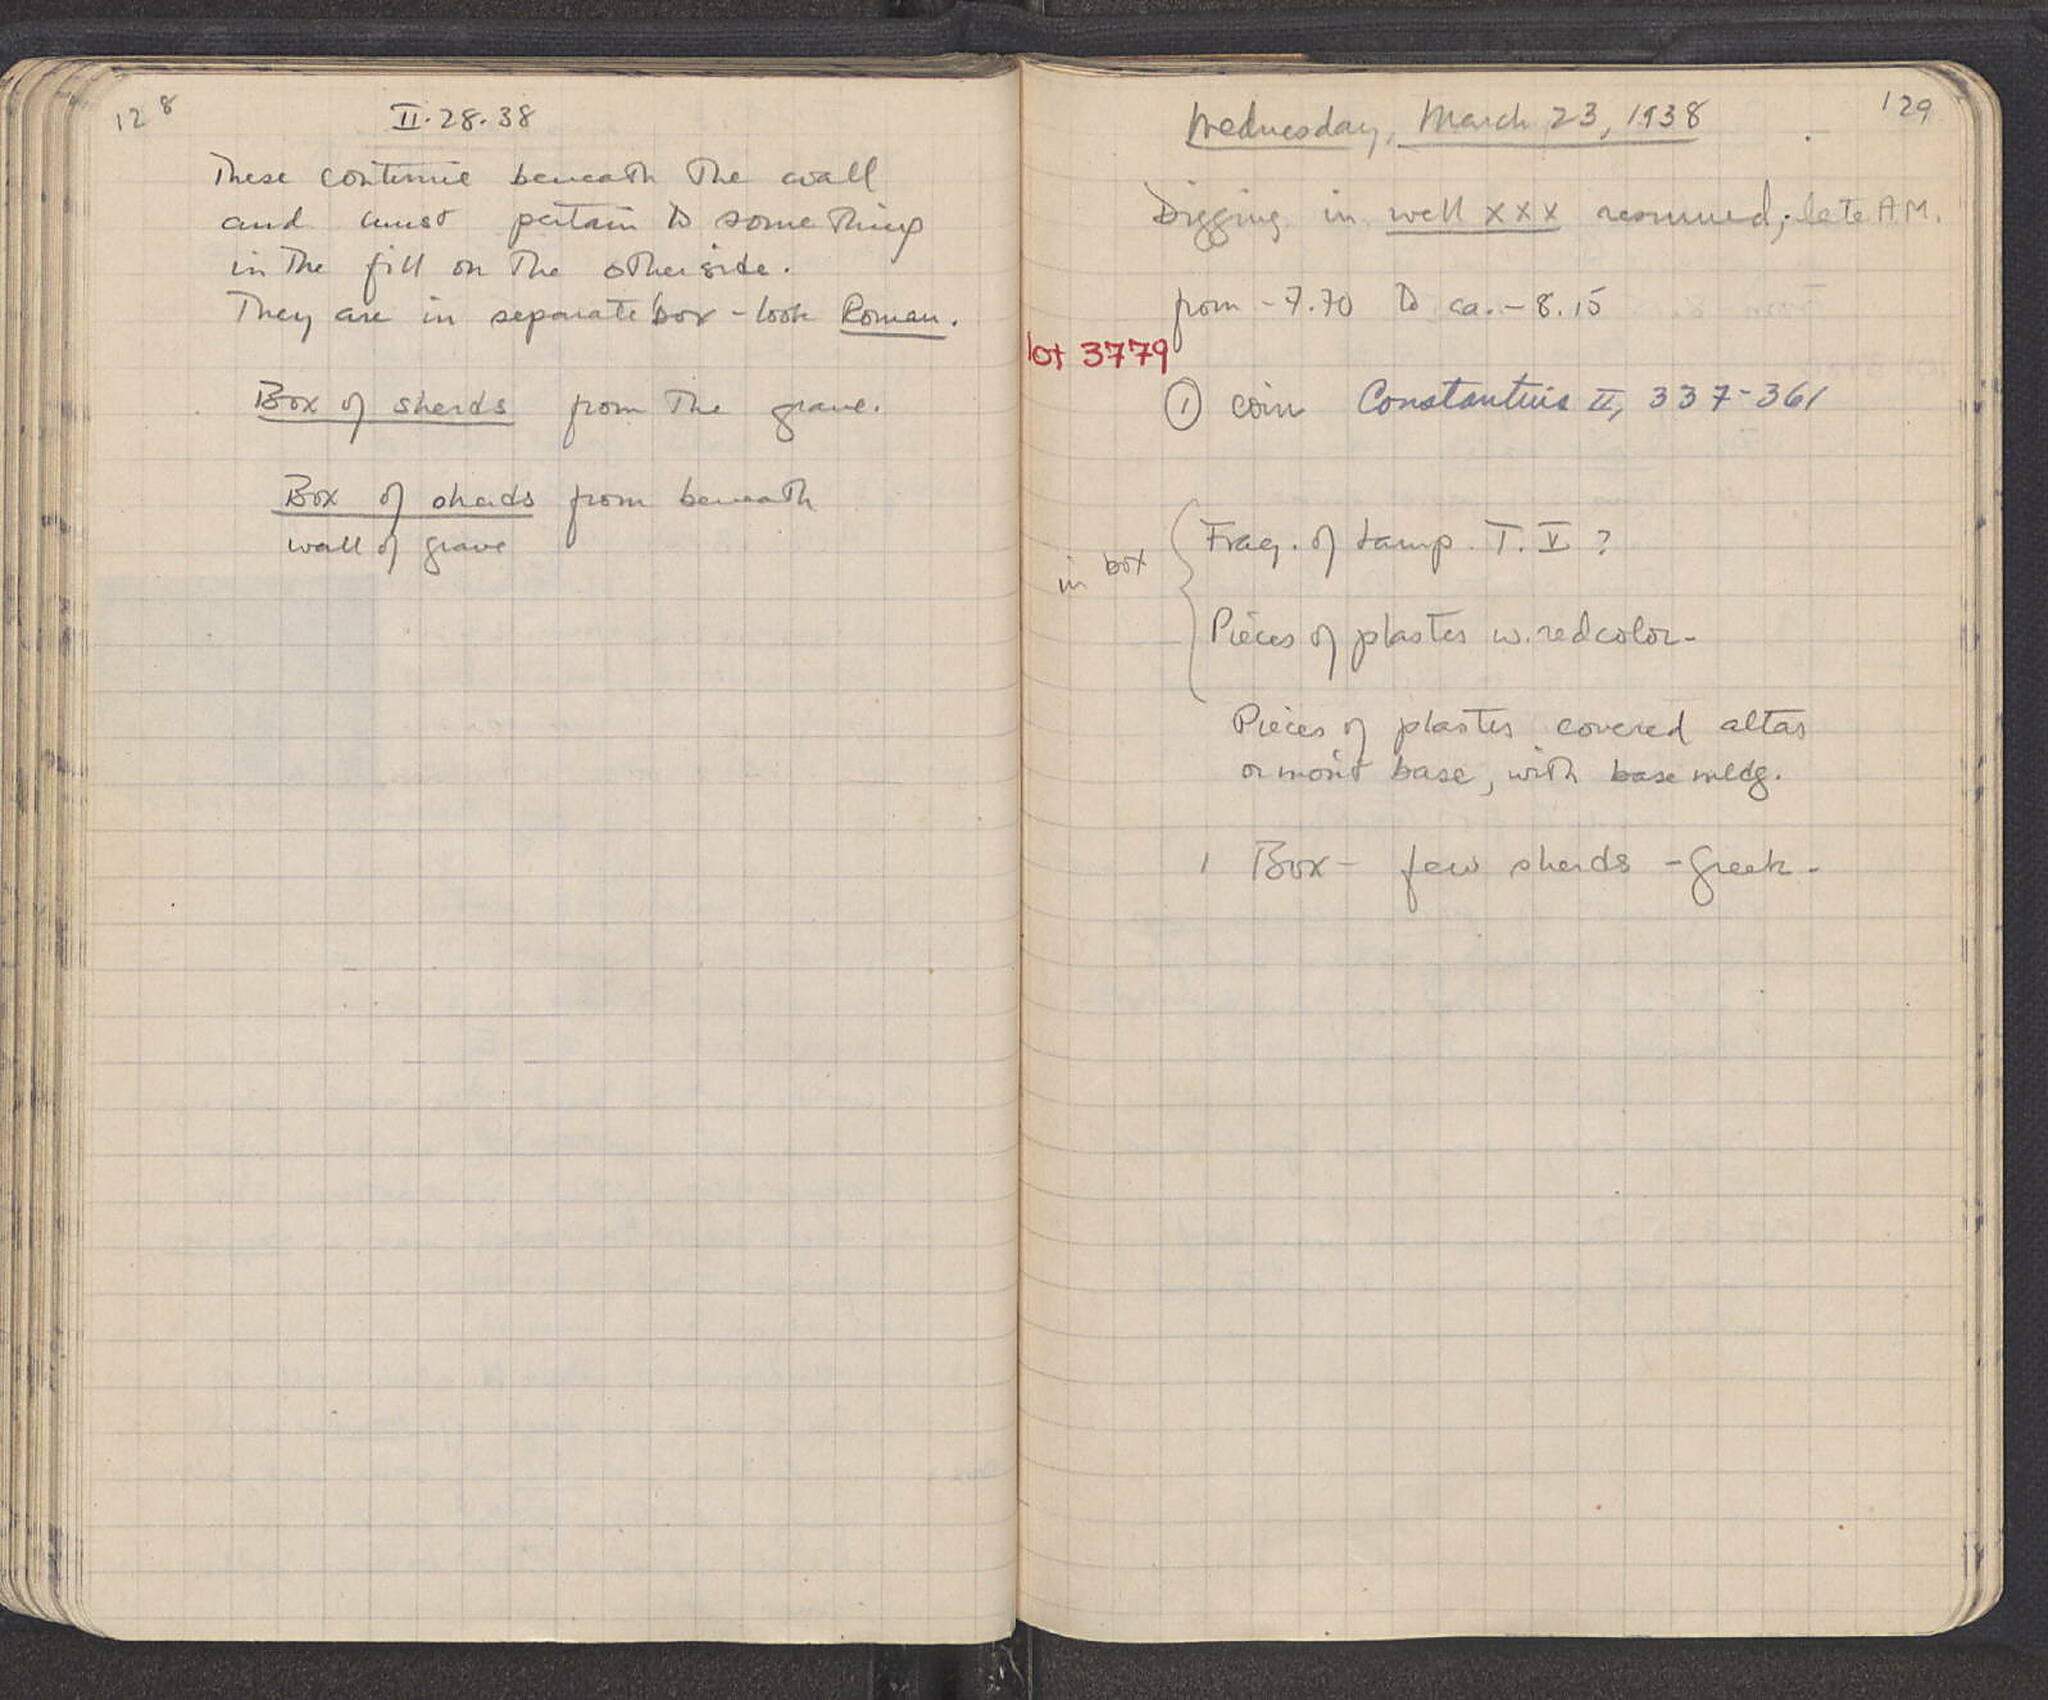 128
II.28.38
These continue beneath the wall
and must pertain to something
in the fill on the other side.
They are in separate box - look Roman.
Box of sherds from the grave.
Box of sherds from beneath
wall of grave
129
Wednesday, March 23, 1938
Digging in well xxx resumed; late A.M.
from -7.70 to ca. -8.15
lot 3779
① coin Constantius II, 337-361
in box
Frag. of Lamp. T. V ?
Pieces of plaster w. red color-
Pieces of plaster covered altar
or mon't base, with base mldg.
1 Box - few sherds - Greek -